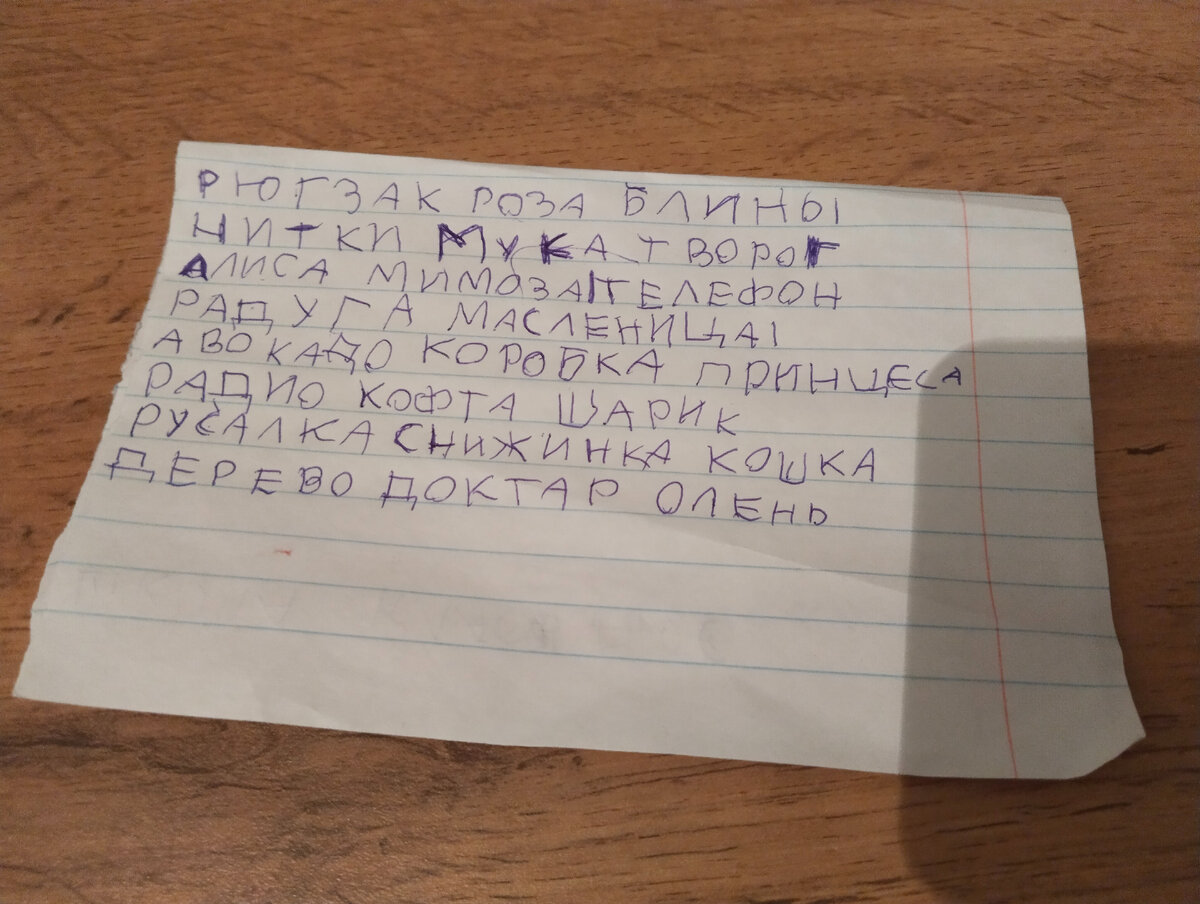 РЮГЗАК РОЗА БЛИНЫ
НИТКИ МУКА ТВОРОГ
АЛИСА МИМОЗА ТЕЛЕФОН
РАДУГА МАСЛЕНИЦА
АВОКАДО КОРОБКА ПРИНЦЕСА
РАДИО КОФТА ШАРИК
РУСАЛКА СНИЖИНКА КОШКА
ДЕРЕВО ДОКТАР ОЛЕНЬ